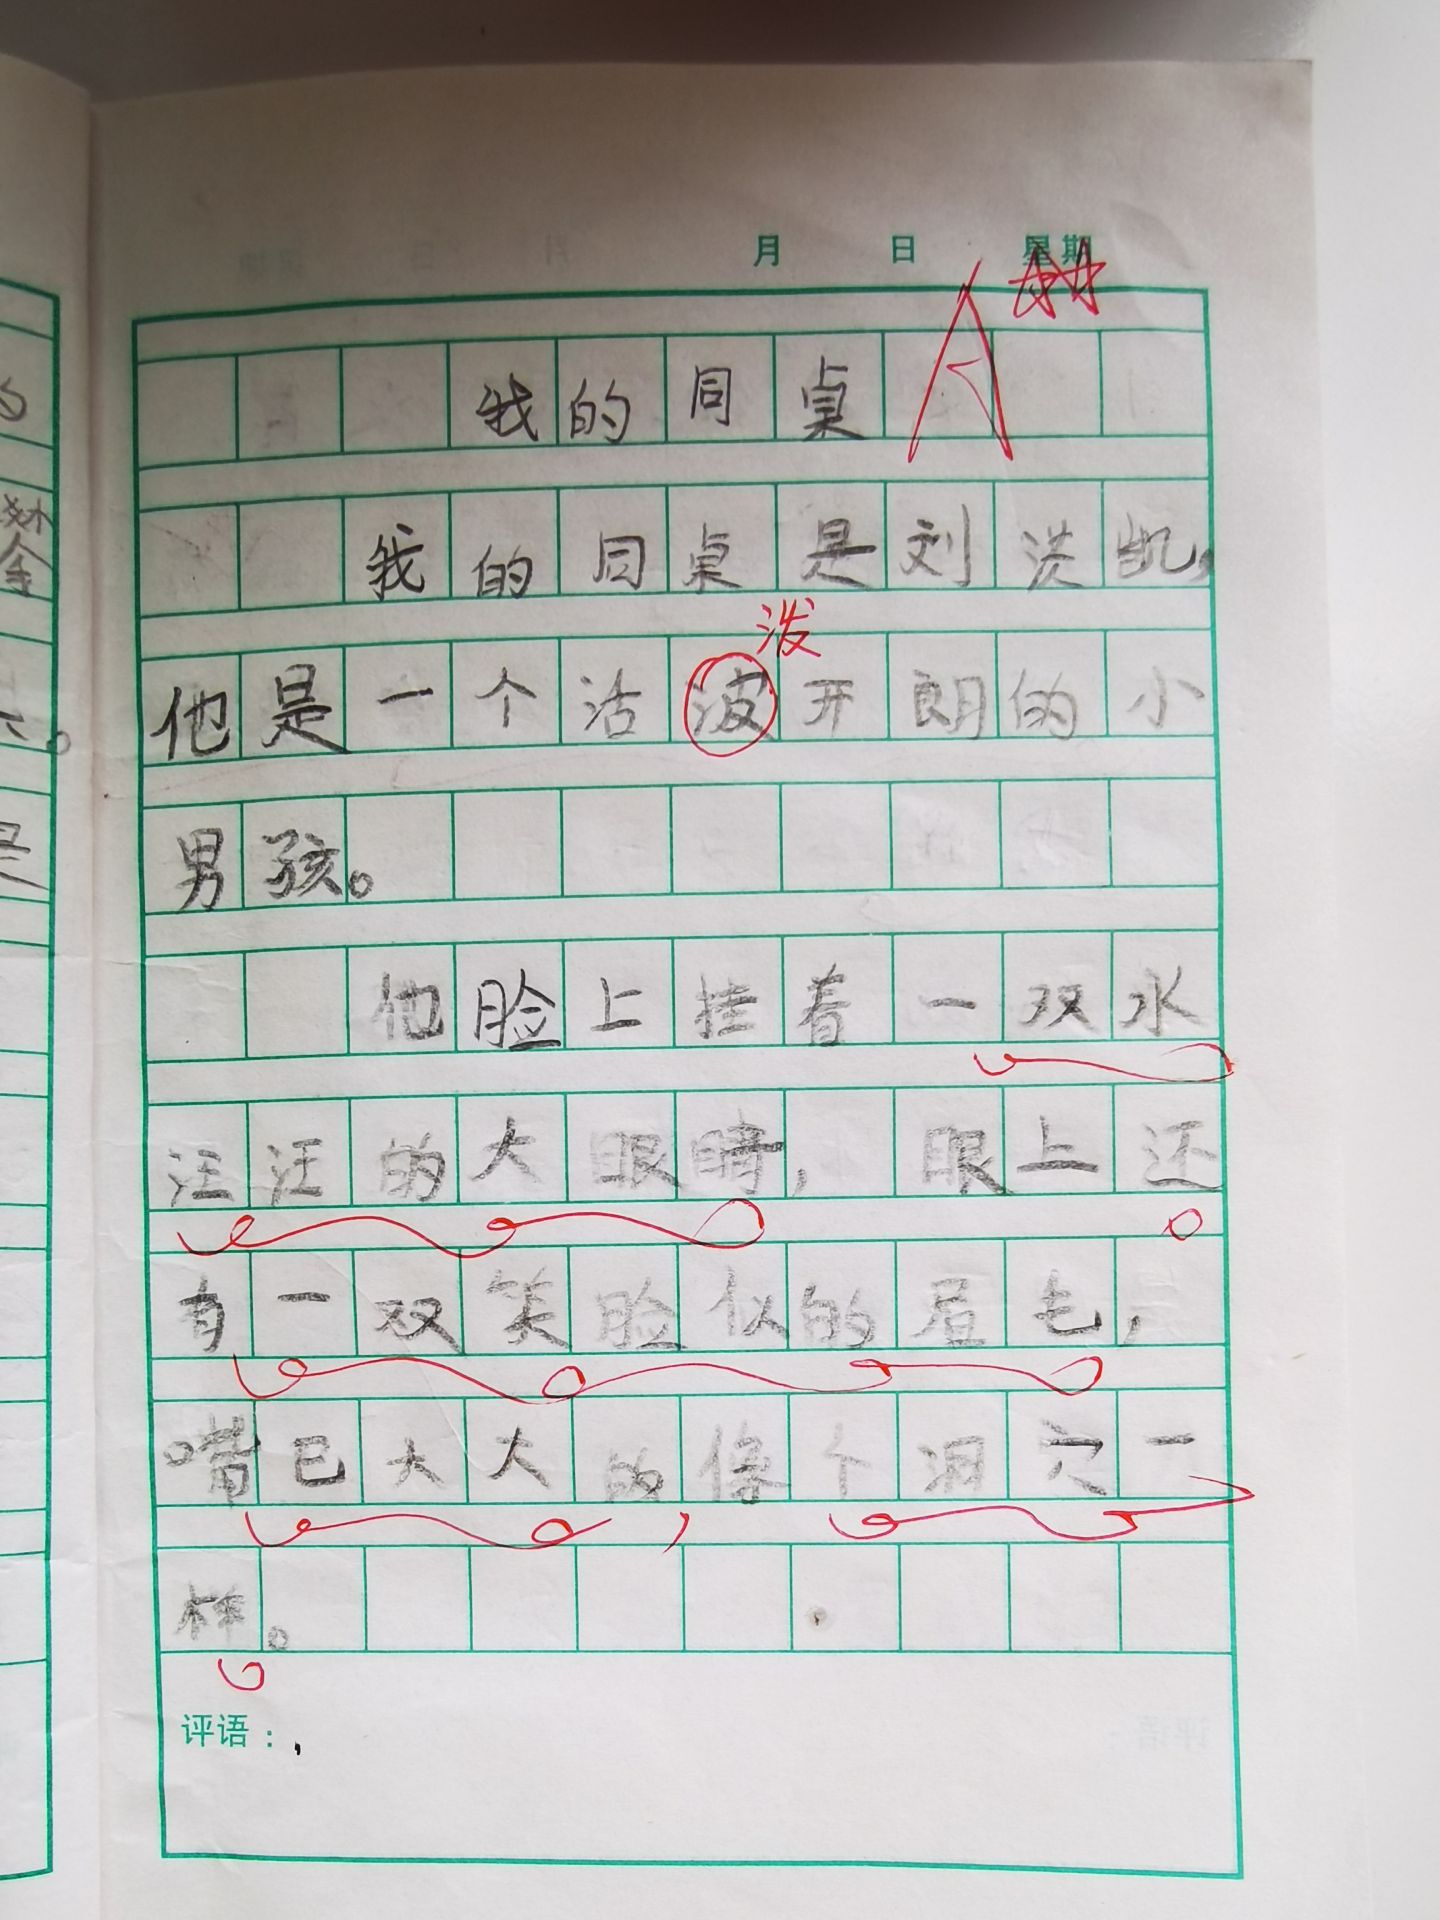 月 日 星期
A
我的同桌
我的同桌是刘洪凯,
泼
他是一个活波开朗的小
男孩。
他脸上挂着一双水
汪汪的大眼睛,眼上还
有一双笑脸似的眉毛,
嘴巴大大的像个洞穴一
样。
评语: